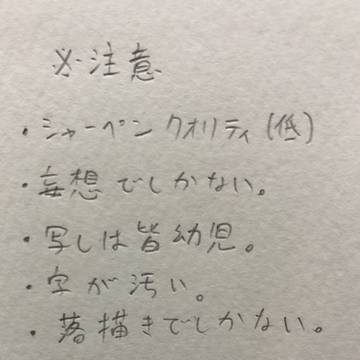 ※注意
・シャーペンクオリティ(低)
・妄想でしかない。
・写しは皆幼児。
・字が汚い。
・落描きでしかない。